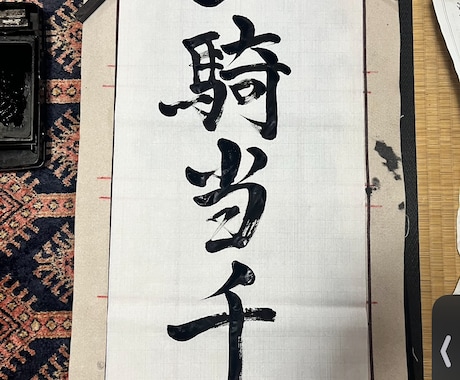 騎当千